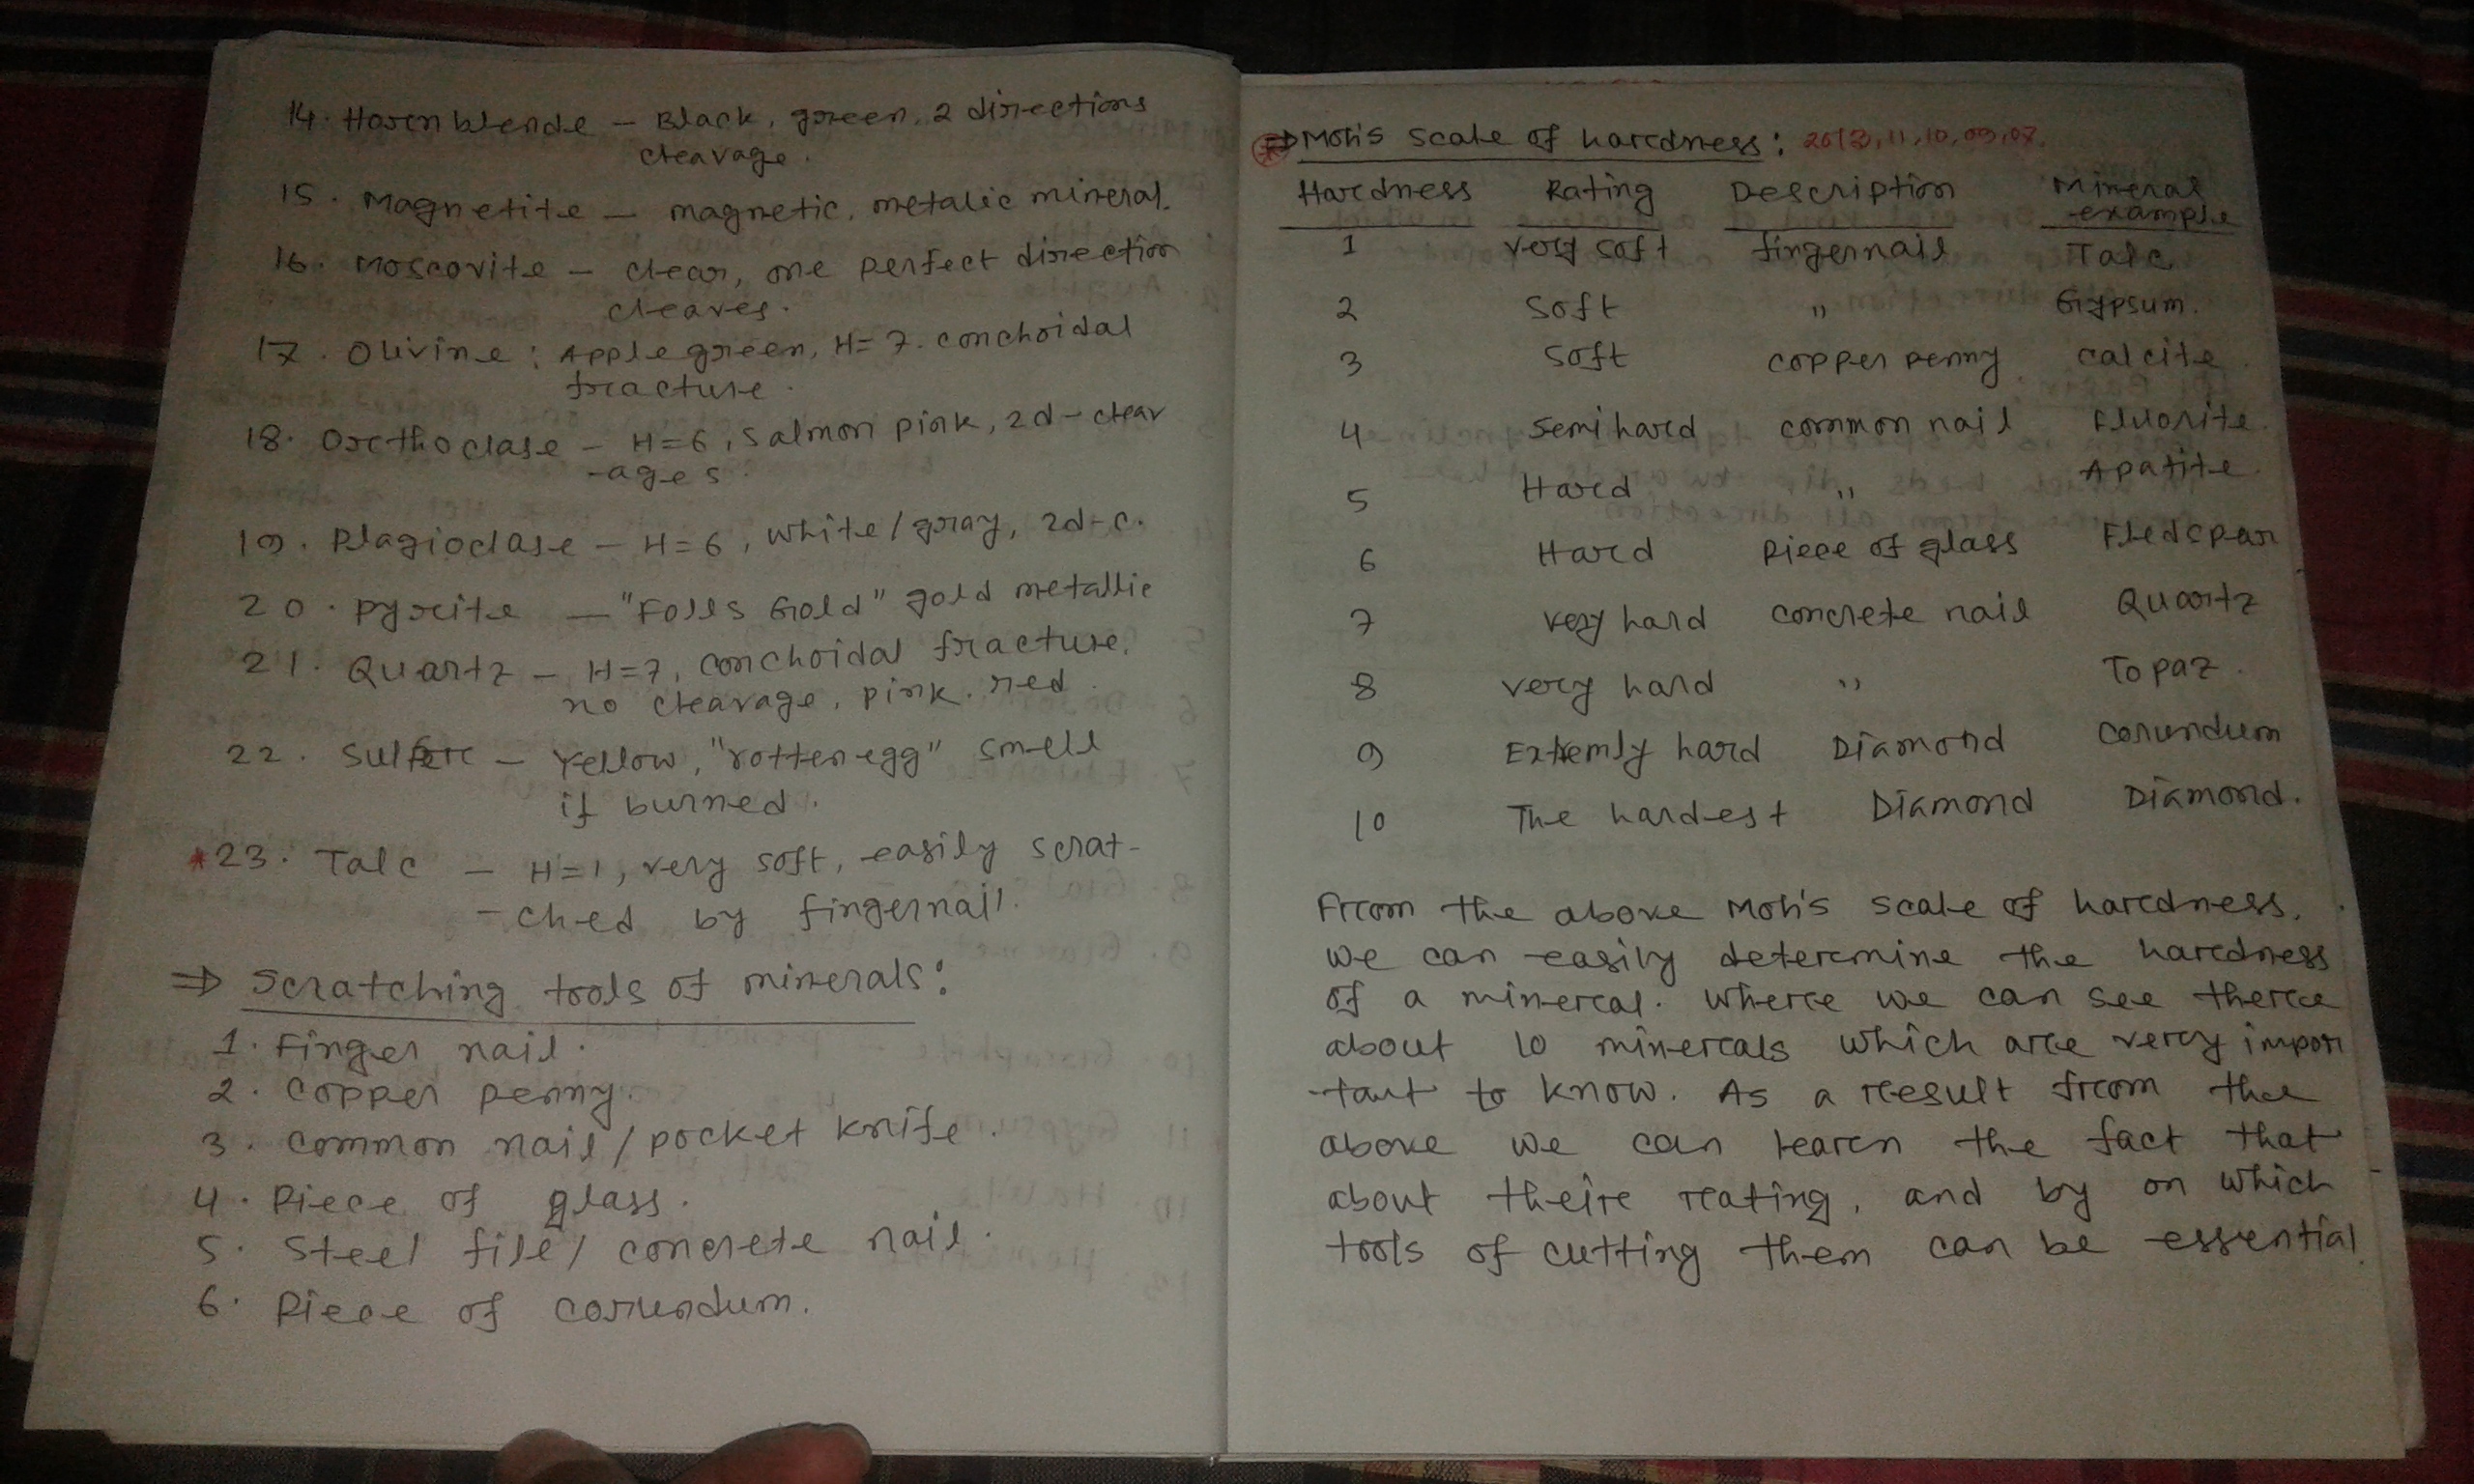 14. Horenblende – Black, green, 2 directions
cleavage.
15. Magnetite – magnetic, metalic mineral.
16. Moscovite – clear, one perfect direction
cleaves.
17. Olivine : Apple green, H=7. conchoidal
fracture.
18. Orcthoclase – H=6, salmon pink, 2d-cleav
-ages.
19. Plagioclase – H=6, white/gray, 2d-c.
20. pyrcite – "Folls Gold" gold metallic
21. Quartz – H=7, conchoidal fracture.
no cleavage, pink. red.
22. Yellow, "rotten egg" smell
if burned.
*23. Talc – H=1, very soft, easily scrat-
-ched by fingernail.
⇒ Scratching tools of minerals:
1. Finger nail.
2. copper penny.
3. common nail/pocket knife.
4. Piece of glass.
5. steel file/ concrete nail.
6. Piece of corundum.
⇒ Moh's scale of harcdness: 2013, 11, 10, 09, 07.
Harcdness Rating Description Mineral
example
1 very soft fingernail Talc
2 soft " Gypsum.
3 soft copper penny calcite.
4 semi hard common nail Fluorite.
5 Harcd " Apatite.
6 Harcd Piece of glass Fledcpar
7 very hard concrete nail Quartz
8 vercy hard " Topaz.
9 Extremly hard Diamond corundum
10 The hardest Diamond Diamond.
Frcom the above Moh's scale of harcdness,
we can easily detercmine the harcdness
of a minercal. wherce we can see therce
about 10 minercals which arce vercy impor
-tant to know. As a rcesult frcom the
above we can learcn the fact that
about theirc rcating, and by on which
tools of cutting them can be essential.